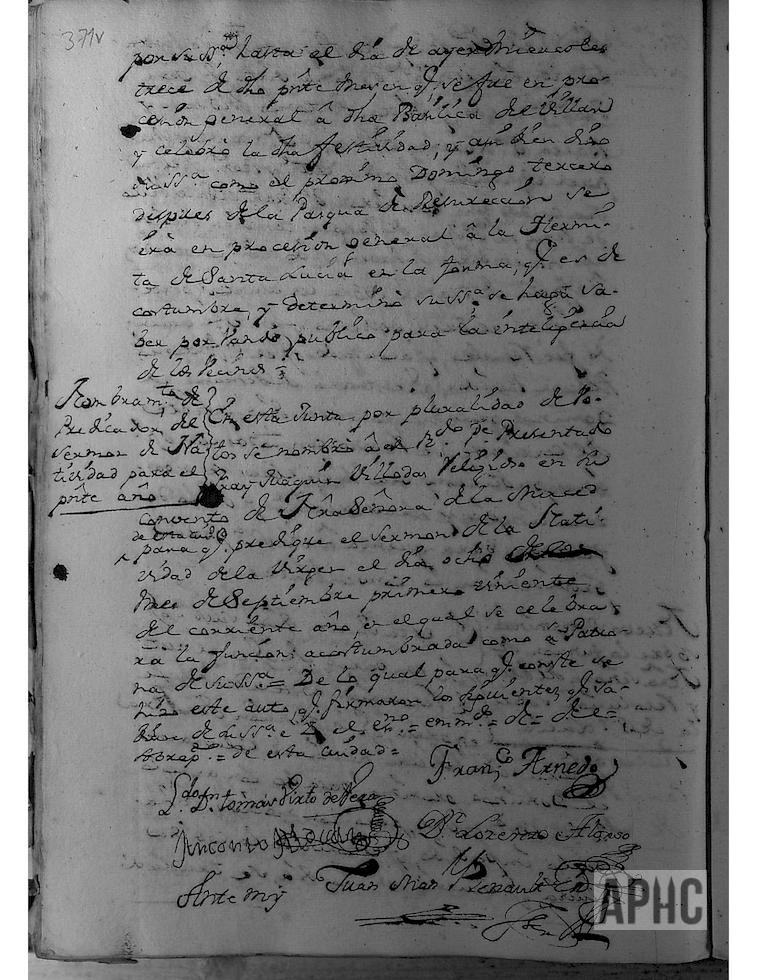 371v
por su Ss.ª hasta el dia de ayer Miercoles
trece de dho pñte Mes en q.e se fue en pro-
cesion general â dha Basilica de Villar
y celebro la dha festividad; y assi vien
su Ss.ª como el proximo Domingo tercero
despues de la Pasqua de Resureccion se
irà en procesion general â la Hermi-
ta de Santa Lucia en la forma, q.e es de
costumbre, y determinò su Ss.ª se haga sa-
ber por Vando publico para la inteligencia
de los Vecinos =
Nombram.to de
Predicador del
sermon de Na-
tividad para el
pñte año
En esta Junta por pluralidad de Vo-
tos se nombro â el R.do P.e Presentado
Fray Joaquin Villodas Religioso en su
convento de Nra Señora de la Merced
de esta ciud.
para q.e predique el sermon de la Nati-
vidad de la Virgen el dia ocho
Mes de Septiembre primero viniente
del corriente año, en el qual se celebra
la funcion acostumbrada como a Patro-
na de su Ss.ª = De lo qual para q.e conste se
hizo este auto, q.e firmaron los siguientes, q.e sa-
ben de su Ss.ª e Yo el es.no = emm.do = de = de el =
sobrep.to = de esta ciudad =
Fran.co Arnedo
L.do D.n Tomas Pixto de Vera
Antonio
D.n Lorenzo Alonso
Ante mi
Juan Man.l Renault
APHC